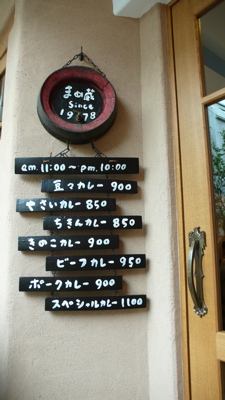 まめ蔵
Since
1978
am.11:00～pm.10:00
豆々カレー 900
やさいカレー 850
ちきんカレー 850
きのこカレー 900
ビーフカレー 950
ポークカレー 900
スペシャルカレー 1100